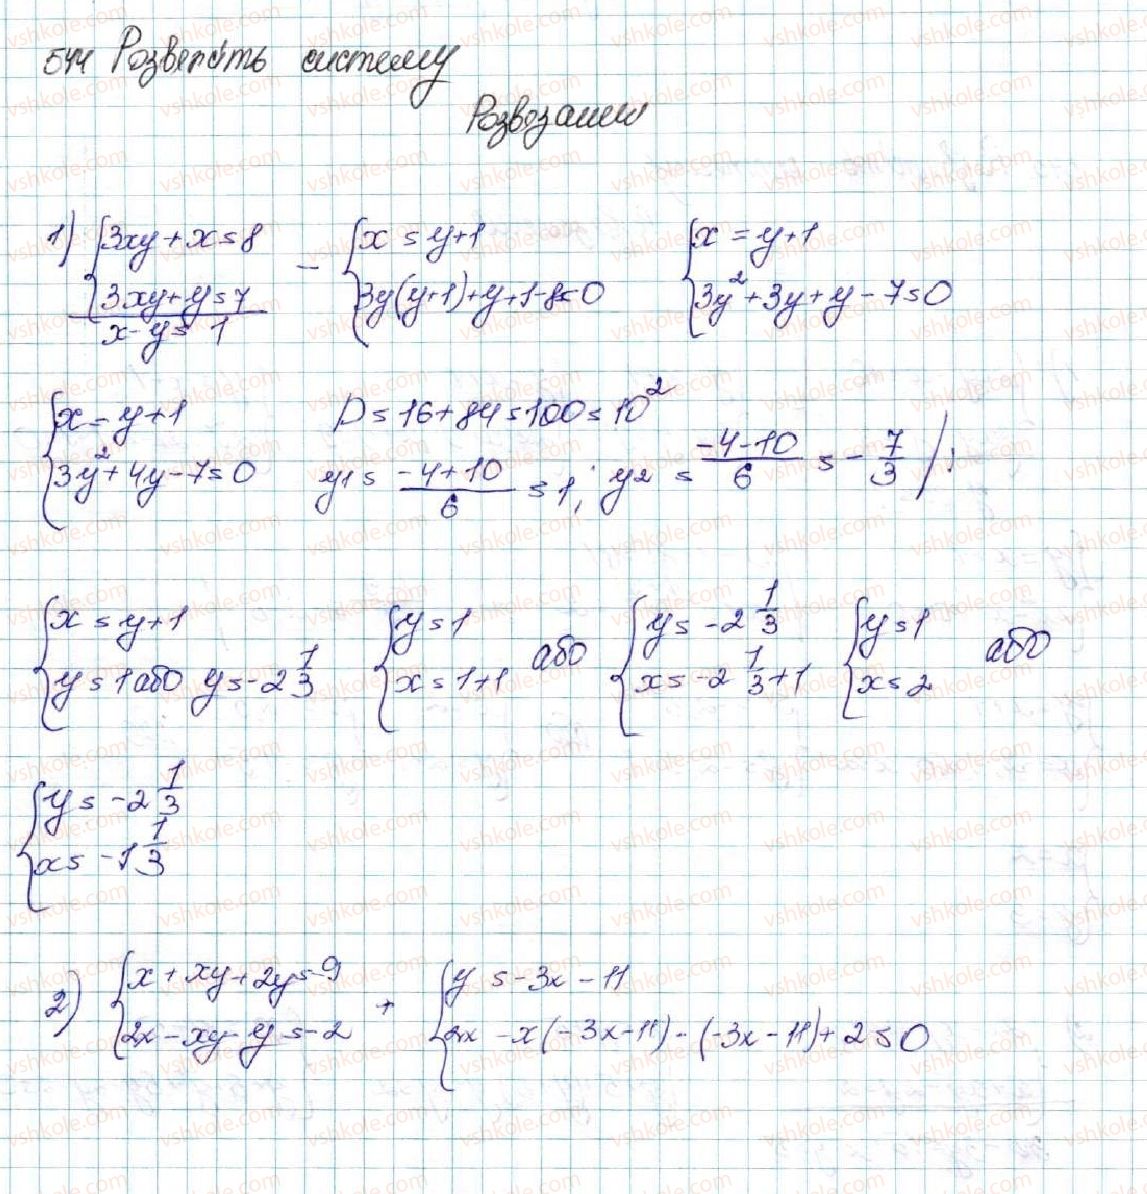 544 Розв'яжіть систему
Розв'язання
1) {3xy + x = 8
3xy + y = 7
x - y = 1
- {x = y + 1
3y(y+1) + y + 1 - 8 = 0
{x = y + 1
3y² + 3y + y - 7 = 0
{x = y + 1
3y² + 4y - 7 = 0
D = 16 + 84 = 100 = 10²
y1 = (-4 + 10)/6 = 1; y2 = (-4 - 10)/6 = -7/3
{x = y + 1
y = 1 або y = -2 1/3
{y = 1
x = 1 + 1
або
{y = -2 1/3
x = -2 1/3 + 1
{y = 1
x = 2
або
{y = -2 1/3
x = -1 1/3
2) {x + xy + 2y = -9
2x - xy - y = -2
+ {y = -3x - 11
2x - x(-3x - 11) - (-3x - 11) + 2 = 0